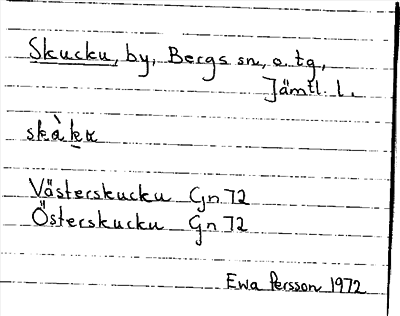 Skucku, by, Bergs sn, o. tg,
Jämtl. l.
skàkʉ
Västerskucku Gn 72
Österskucku Gn 72
Ewa Persson 1972